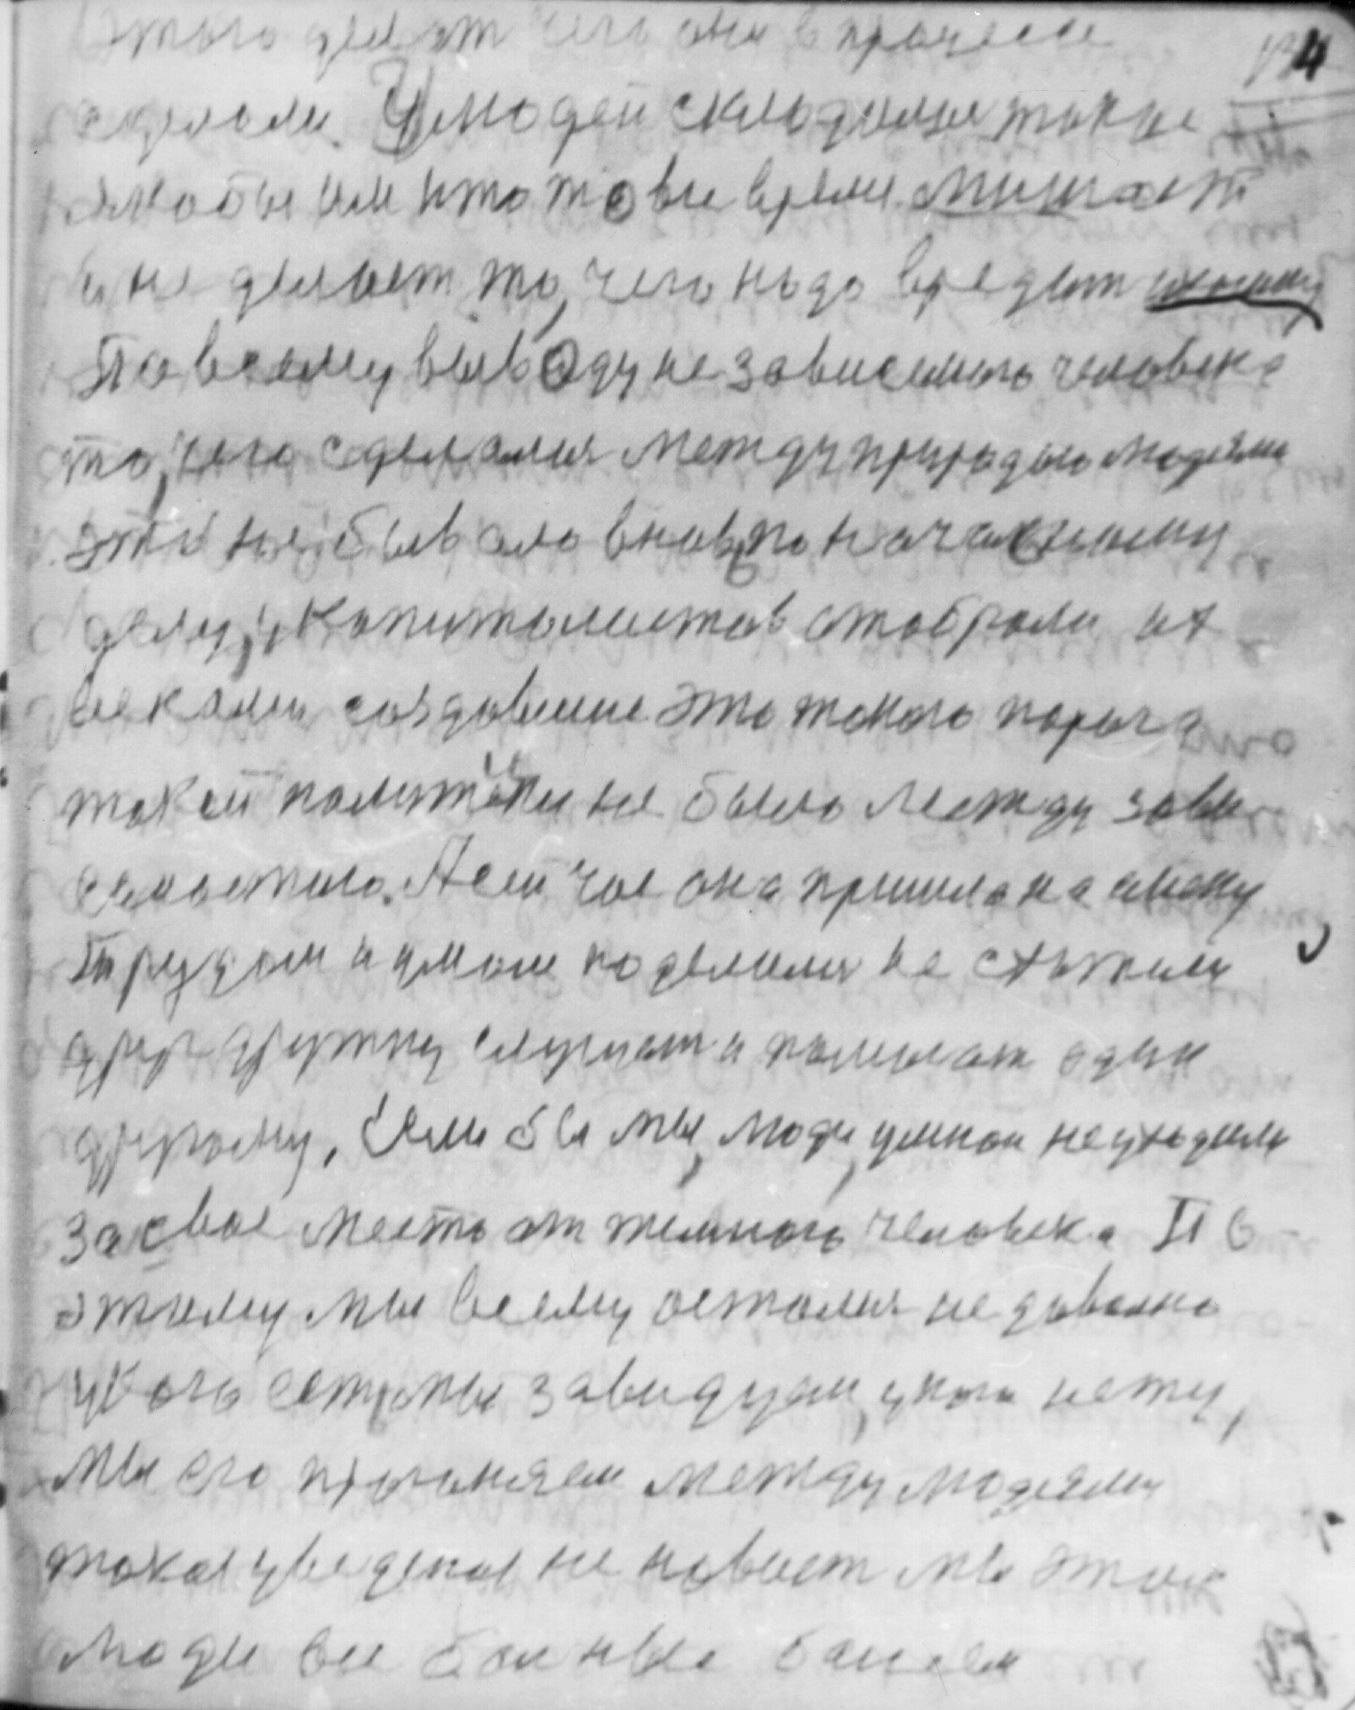 Этого делать чего они в процессе 4
сделали. У людей складилися такие
якобы им кто то все время мишает
и не делает то, чего надо вредит
По всему выводу не зависимого человека
то, чего сделалися между природою людями
эти небывало внов по началному
делу, у капиталистов отобрали их
веками создавшие это такого порога
такой политики не было между зави
семостию. А сей час она пришла на смену
трудом и умом поделилися не с чужими
друг дружку слушает и помогает один
другому, Если бы мы, люди, умнои не уходили
за свое место от темного человека П о
этому мы всему осталися не доволно
у кого есть мы завидуем, у кого нету,
мы его прогоняем между людями
такая уведеная не новист мы этаж
люди все болные болеем